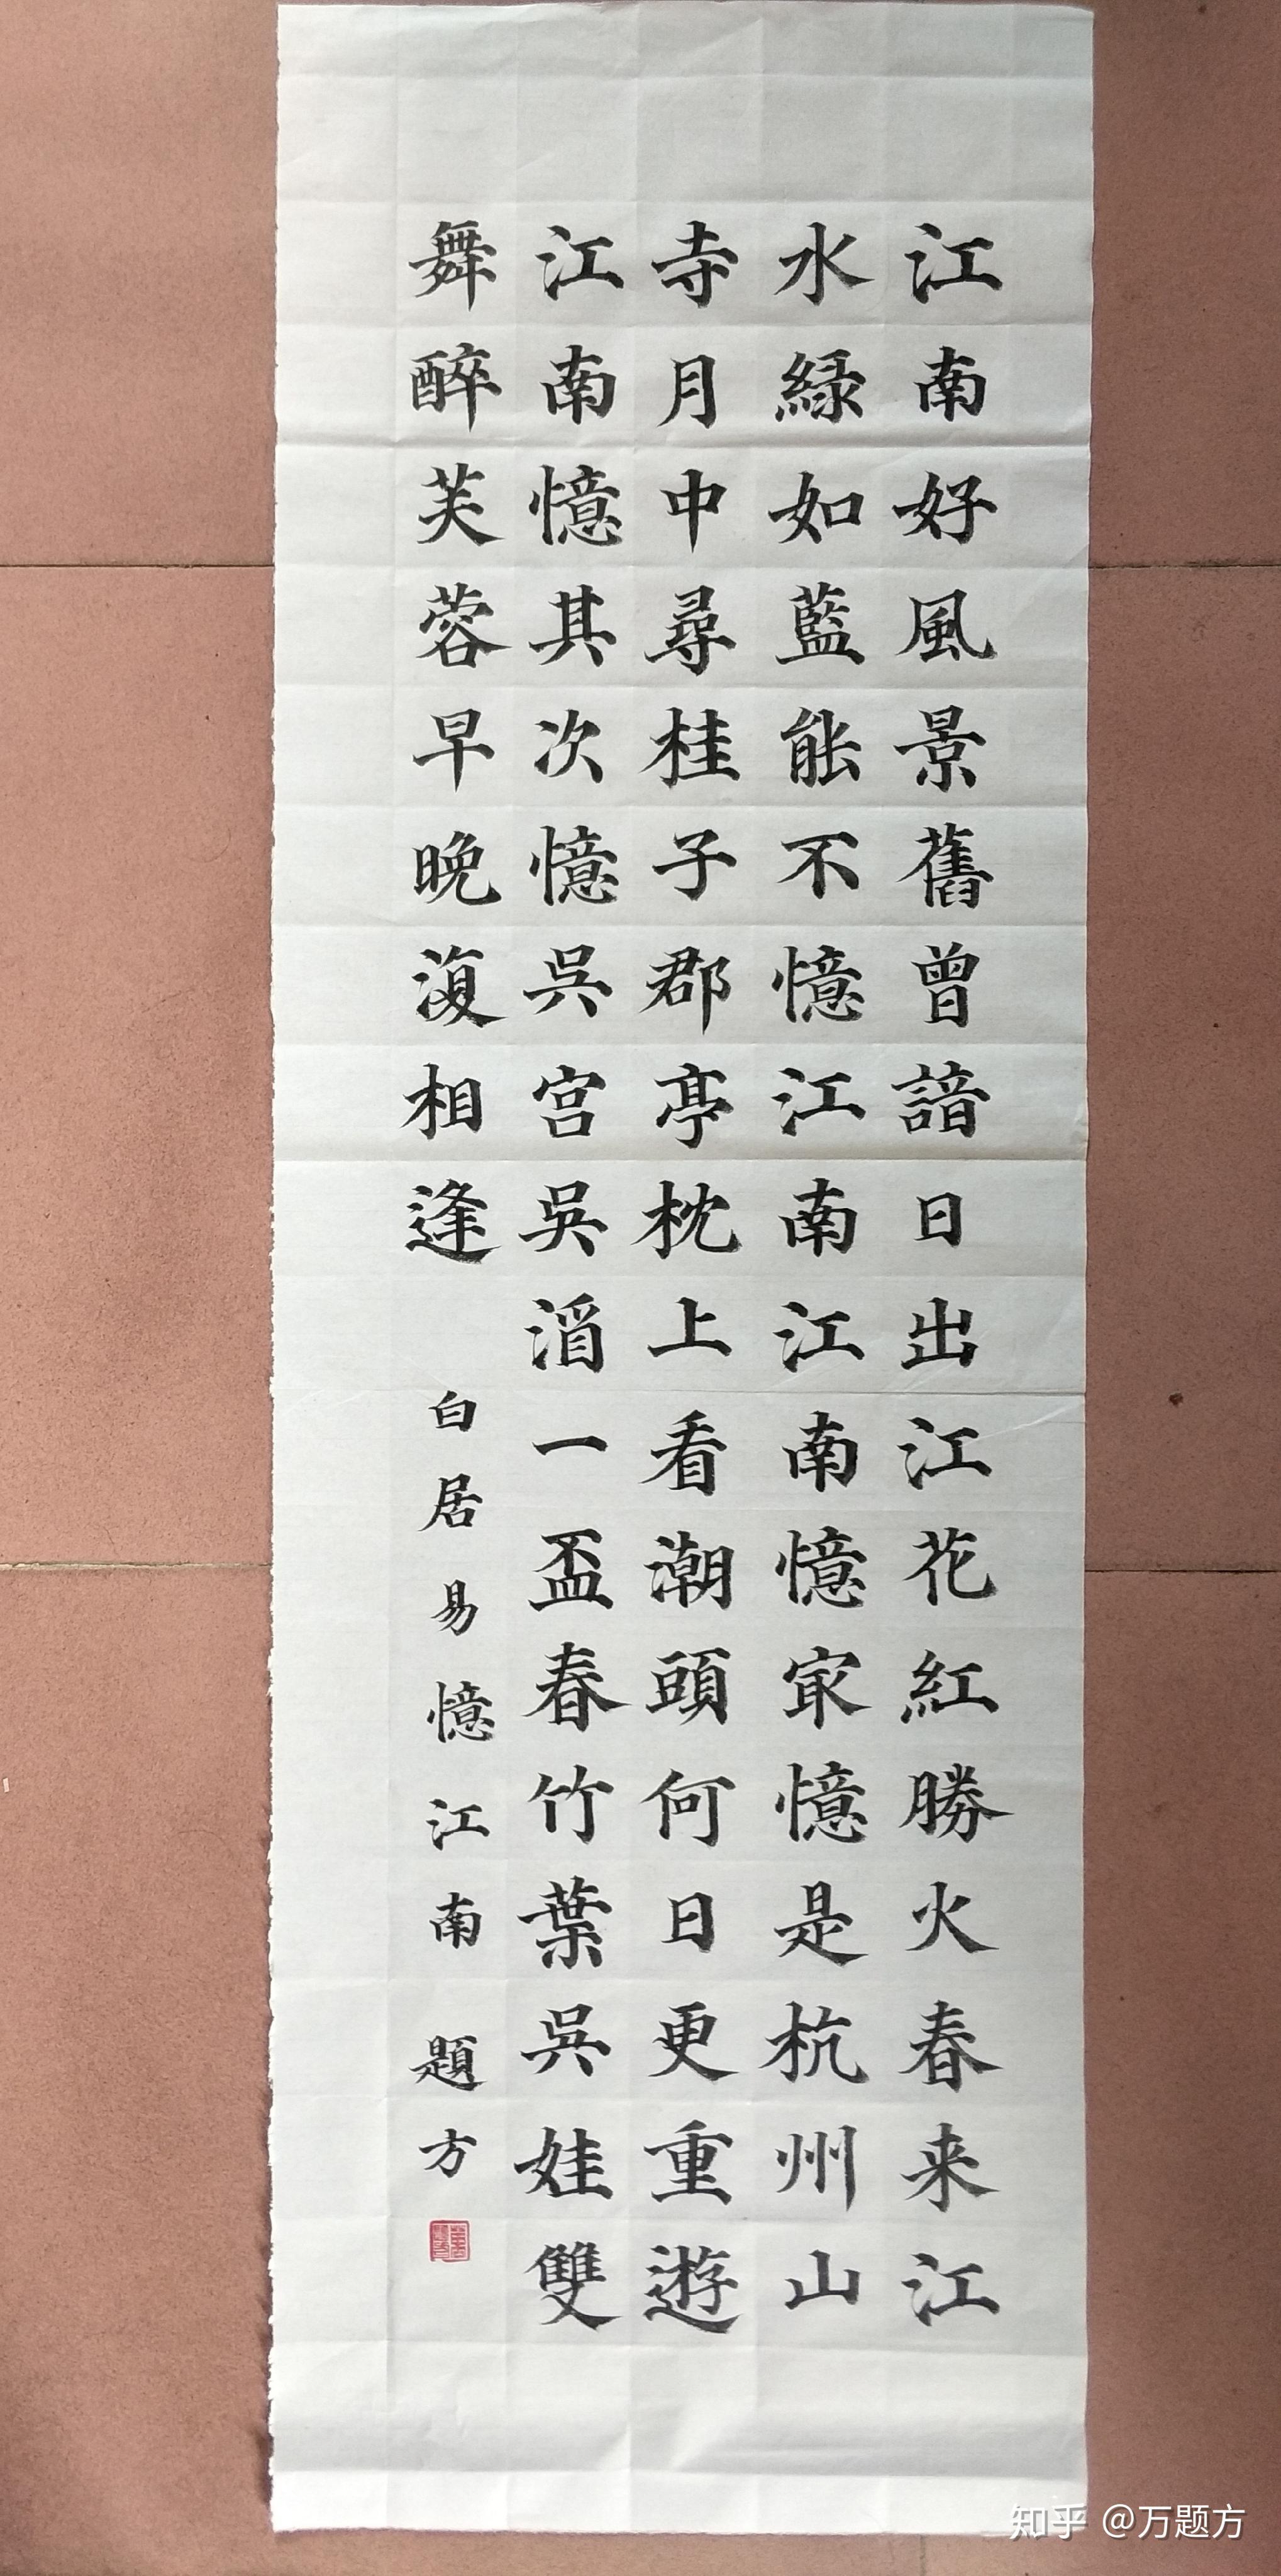 江南好風景舊曾諳日出江花紅勝火春来江
水緑如藍能不憶江南江南憶㝡憶是杭州山
寺月中尋桂子郡亭枕上看潮頭何日更重遊
江南憶其次憶吳宫吳酒一盃春竹葉吳娃雙
舞醉芙蓉早晚復相逢
白居易憶江南 題方
知乎 @万题方